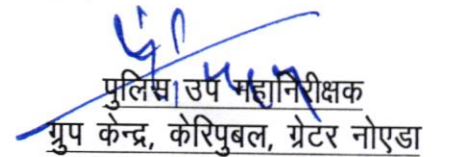 पुलिस उप महानिरीक्षक
ग्रुप केन्द्र, केरिपुबल, ग्रेटर नोएडा